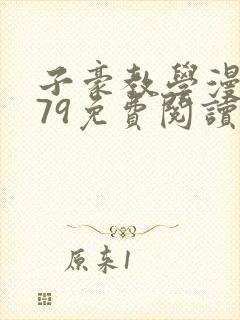 子豪教學漫
79免費閱讀
原来1